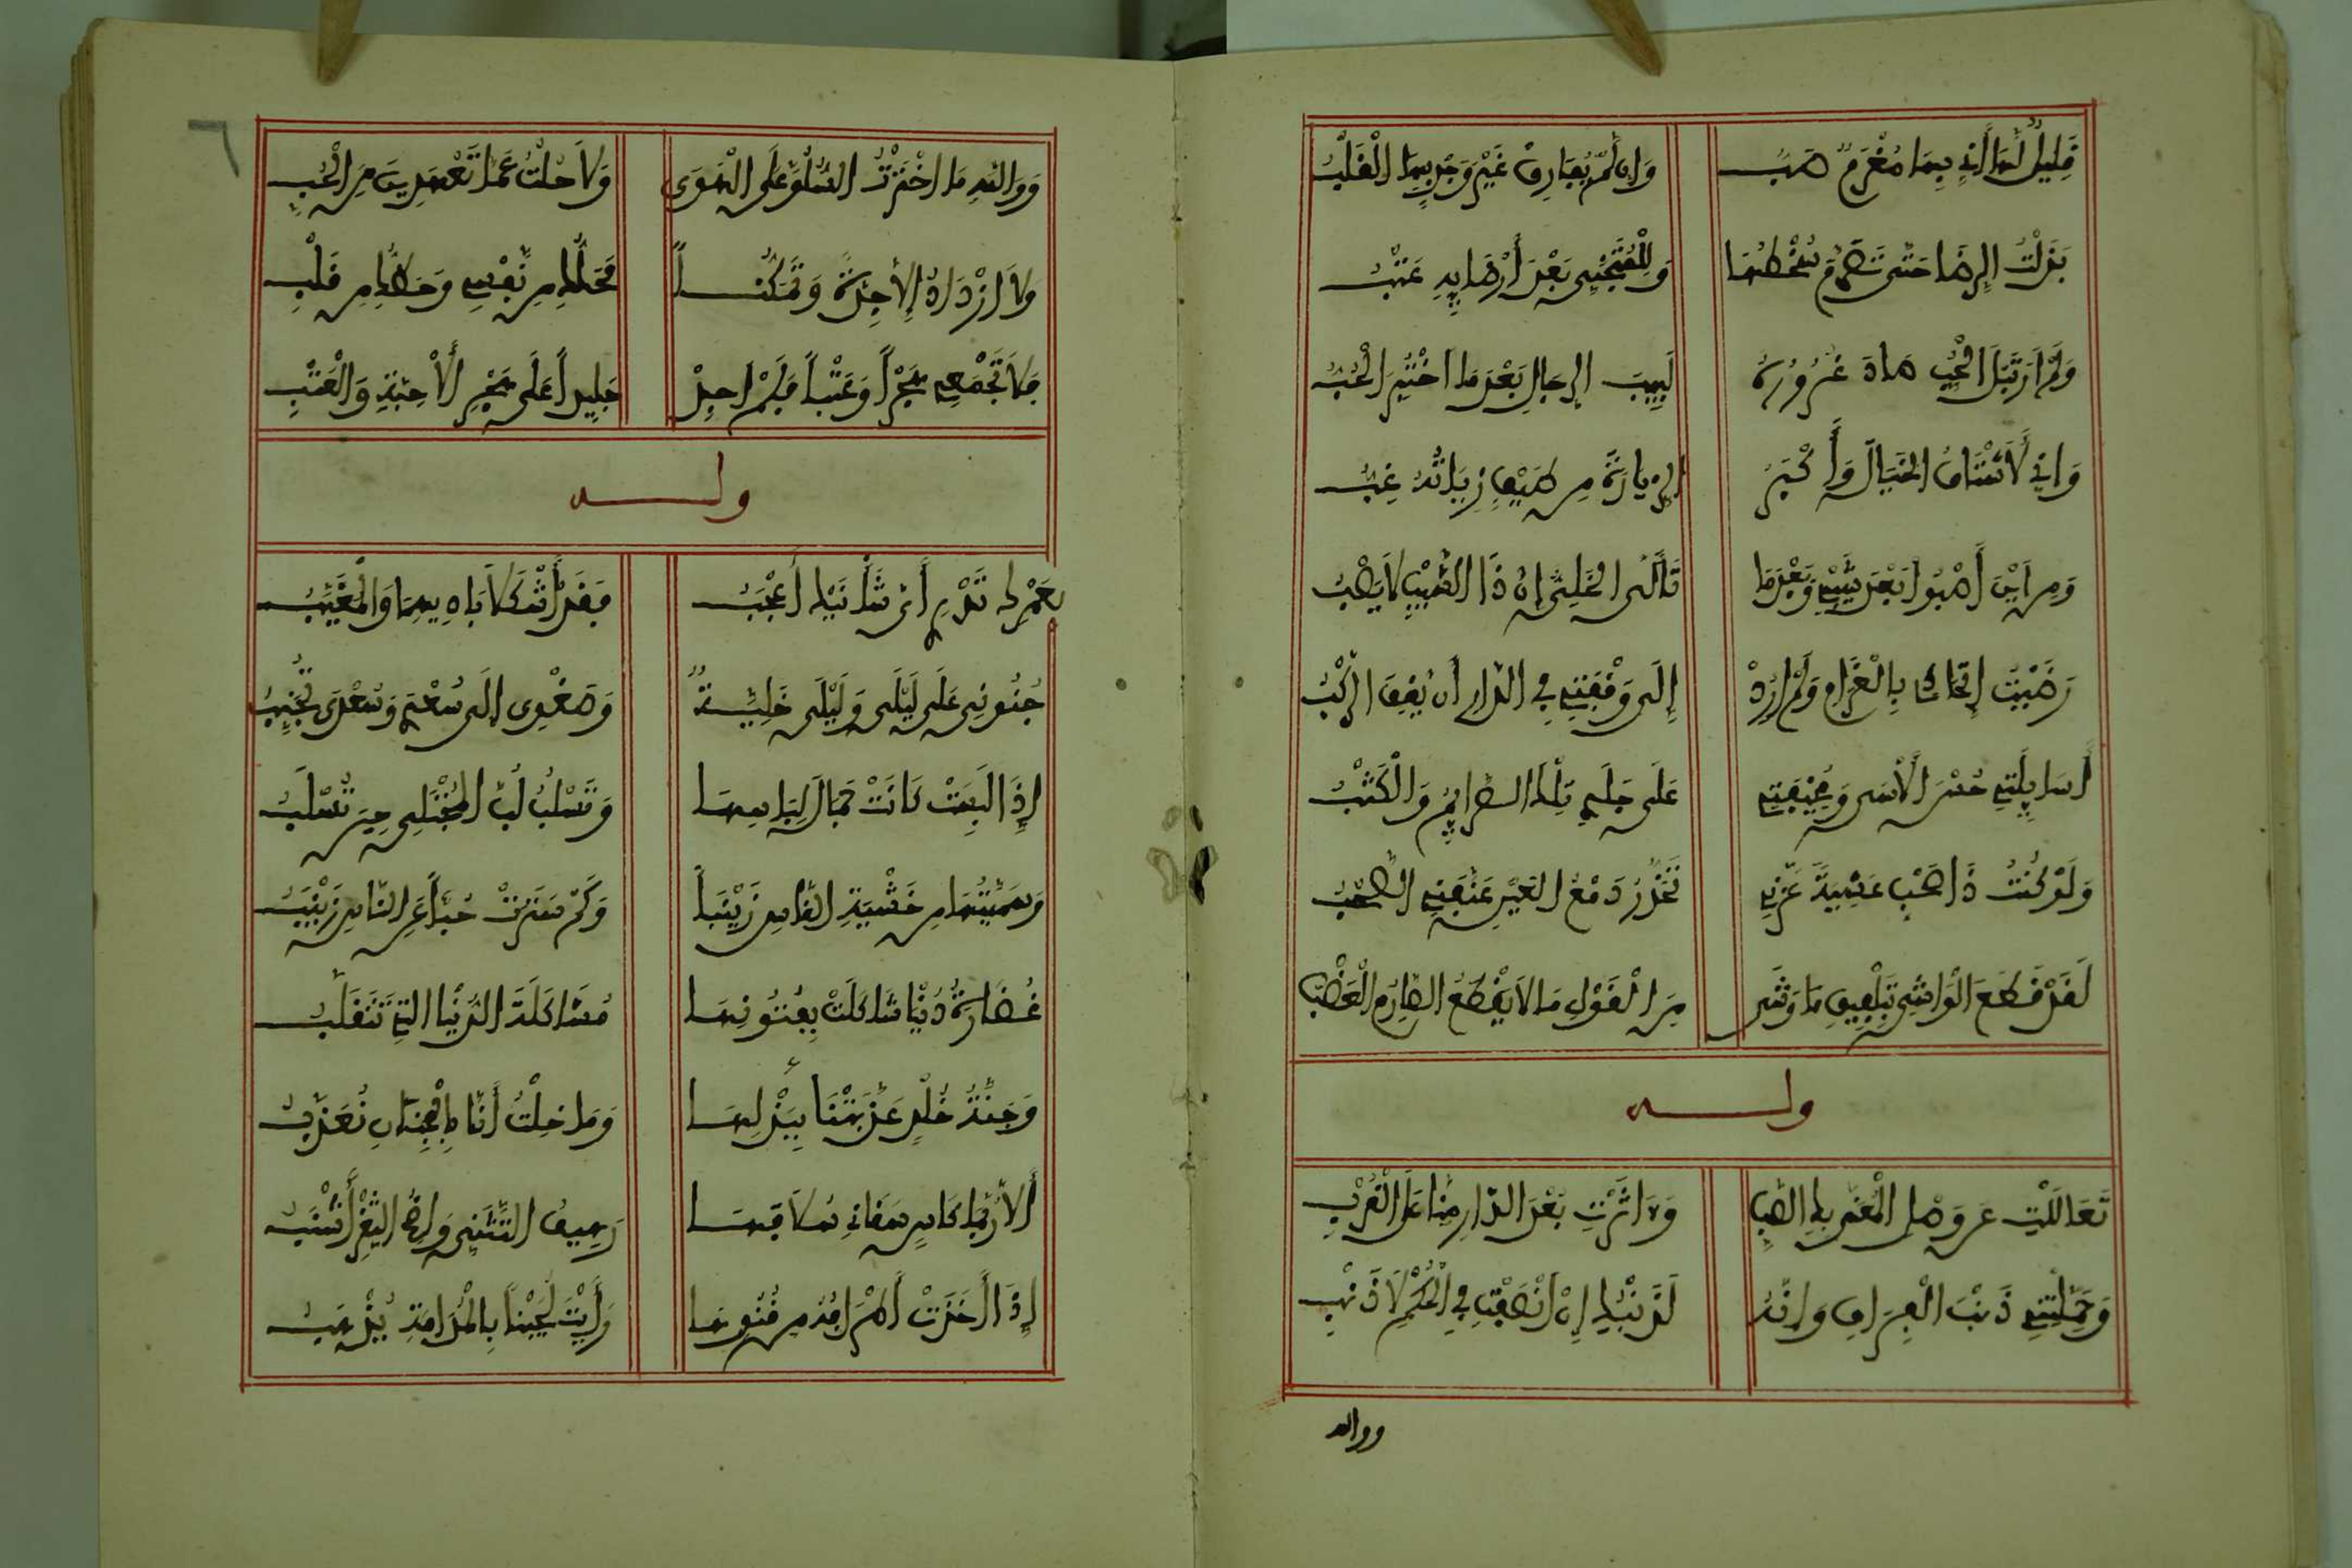 قَلِيلٌ لَهَا أَنِّي بِهَا مُغْرَمٌ صَبُّ وَإِن لَّمْ يُفَارِقْ غَيْرَ وَجْدٍ بِهَا الْقَلْبُ
بَذَلْتُ الرِّضَا حَتَّى تَصَرَّمَ سُخْطُهَا وَلِلْمُتَجَنِّي بَعْدَ إِرْضَايِهِ عَتْبُ
وَلَمْ أَرَ مِثْلَ الْحُبِّ صَادَ غُرُورُهُ لَبِيبَ الرِّجَالِ بَعْدَ مَا اخْتُبِرَ الْحُبُّ
وَإِنِّي لَأَشْتَاقُ الْخَيَالَ وَأُكْبِرُ الزِّيَارَةَ مِن طَيْفٍ زِيَارَتُهُ غِبُّ
وَمِن أَيْنَ أَصْبُوا بَعْدَ شَيْبِي وَبَعْدَمَا تَأَلَّى الْخَلِيُّ إِنَّ ذَا الشَّيْبِ لَا يَصْبُ
رَضَيْتُ اتِّحَادِي بِالْغَرَامِ وَلَمْ أُرِدْ إِلَى وَقْفَتِي فِي الدَّارِ أَن يَقِفَ الرَّكْبُ
أَسَايِلَتِي حُسْرَ الْأَسَى وَمُخِيفَتِي عَلَى جَلَدِي تِلْكَ الصَّرَايِمُ وَالْكُثْبُ
وَلَوْ كُنْتُ ذَا صَحْبٍ عَشِيَّةَ عَزَّنِي تَحَدُّرُ دَمْعِ الْعَيْنِ عَنَّفَنِي الصَّحْبُ
لَقَدْ قَطَعَ الْوَاشِي بِتَلْفِيقِ مَا وَشَى مِنَ الْقَوْلِ مَا لَا يَقْطَعُ الصَّارِمُ الْعَضْبُ
ولـــه
تَعَالَلْتِ عَن وَصْلِ الْمُعَنَّى بِكِ الصَّبِّ وَءَاثَرْتِ بُعْدَ الدَّارِ مِنَّا عَلَى الْقُرْبِ
وَحَمَّلْتِنِي ذَنْبَ الْفِرَاقِ وَإِنَّهُ لَذَنْبُكِ إِنْ أَنْصَفْتِ فِي الْحُكْمِ لَا ذَنْبِ
ووالله
وَوَاللهِ مَا اخْتَرْتُ السُّلُوَّ عَلَى الْهَوَى وَلَا حُلْتُ عَمَّا تَعْهَدِينَ مِنَ الْحُبِّ
وَلَا ازْدَادَ إِلَّا جِدَّةً وَتَمَكُّنًا مَحَلُّكِ مِن نَّفْسِي وَحَظُّكِ مِن قَلْبِ
فَلَا تَجْمَعِي هَجْراً وَعَتْباً فَلَمْ أَجِدْ جَلِيداً عَلَى هَجْرِ الْأَحِبَّةِ وَالْعَتْبِ
ولـــه
لعَمْرِكَ تَدْرِي أَيَّ شَأْنَيَّ أَعْجَبُ فَقَدْ أَشْكَلَا بَادِيهِمَا وَالْمُغَيَّبُ
جُنُونِي عَلَى لَيْلَى وَلَيْلَى خَلِيَّةٌ وَصَغْوِى إِلَى سُعْدَى وَسُعْدَى تَجَنَّبُ
إِذَا لَبِسَتْ كَانَتْ جَمَالَ لِبَاسِهَا وَتَسْلُبُ لُبَّ الْمُجْتَلِي حِينَ تُسْلَبُ
وَسَمَّيْتُهَا مِن خَشْيَةِ النَّاسِ زَيْنَباً وَكَمْ سَتَرَتْ حُبّاً عَنِ النَّاسِ زَيْنَبُ
غُضَارَةُ دُنْيَا شَاكَلَتْ بِفُنُونِهَا مُشَاكَلَةَ الدُّنْيَا الَّتِي تَتَقَلَّبُ
وَجَنَّةُ خُلْدٍ عَذَّبَتْنَا بِبَذْلِهَا وَمَا خِلْتُ أَنَّا بِالْجِنَانِ نُعَذَّبُ
أَلَا رُبَّمَا كَأْسٍ سَقَانِي سُلَافَهَا رَهِيفُ التَّثَنِّي وَاضِحُ الثَّغْرِ أَشْنَبُ
إِذَا أَخَذَتْ أَطْرَافُهُ مِن فُتُونِهَا رَأَيْتَ لُجَيْناً بِالْمُدَامَةِ يُذْهَبُ